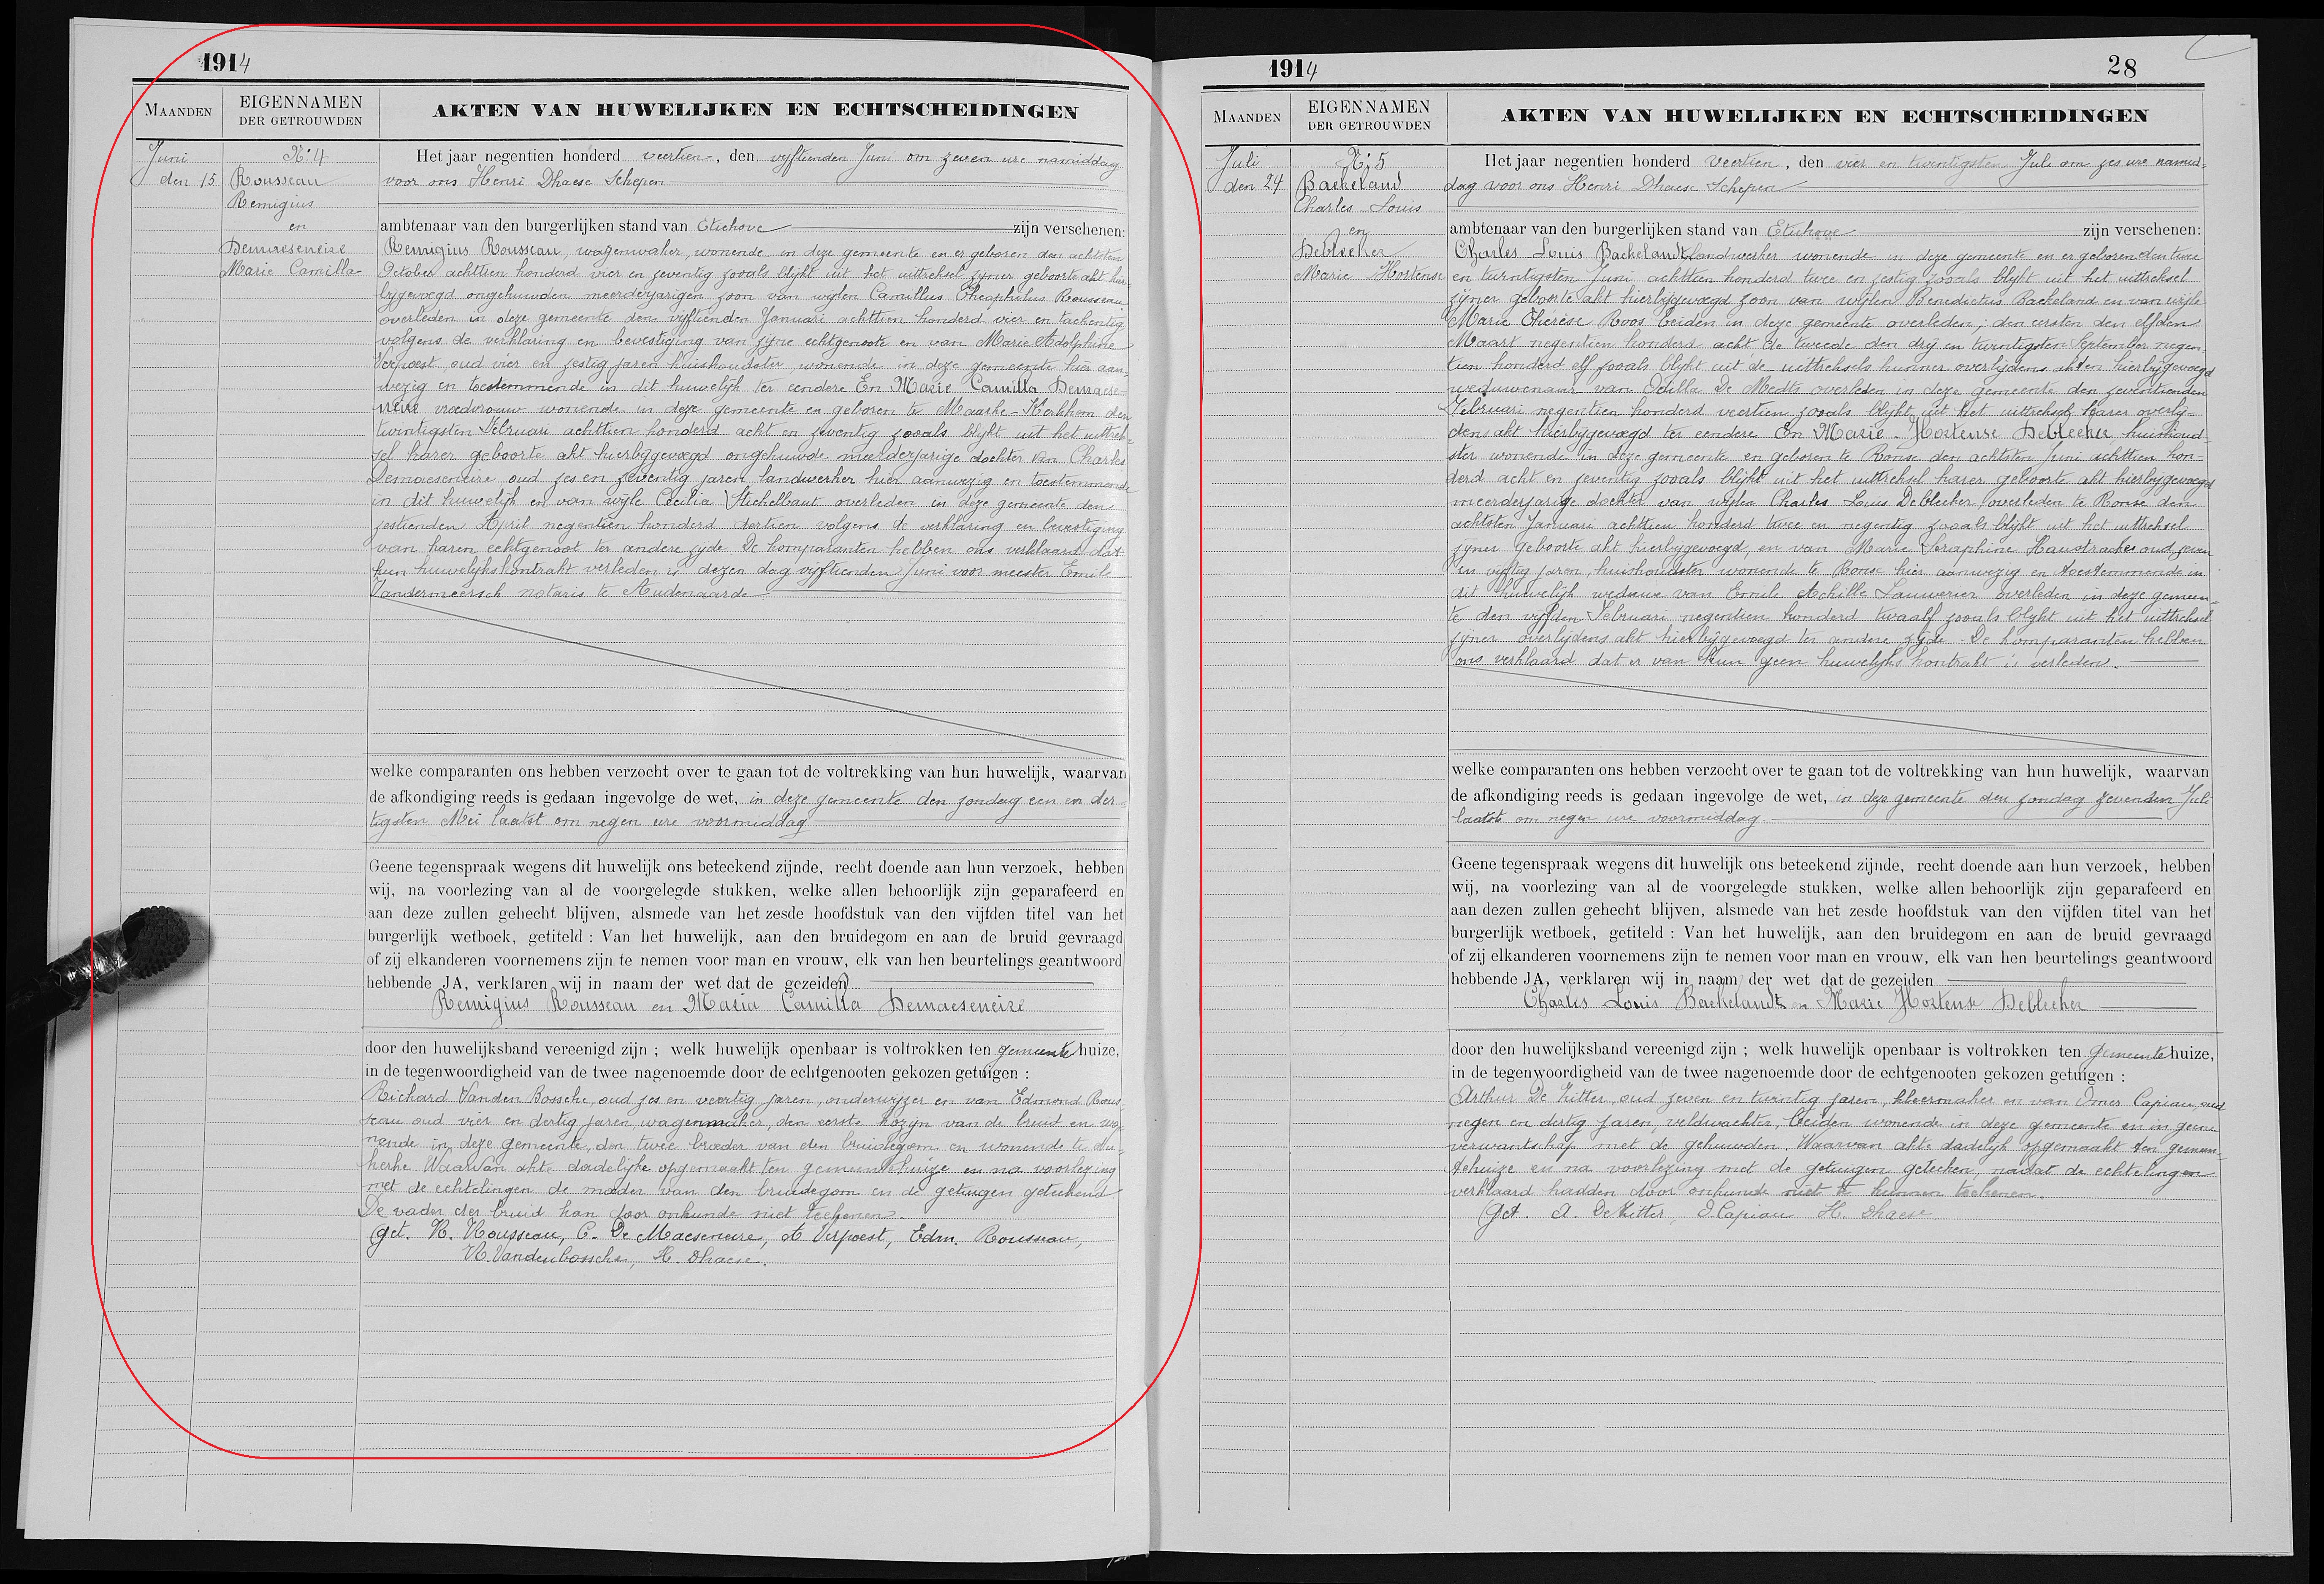 1914
MAANDEN
EIGENNAMEN
DER GETROUWDEN
AKTEN VAN HUWELIJKEN EN ECHTSCHEIDINGEN
Juni
den 15
N: 4
Rousseau
Remigius
en
Demaeseneire
Marie Camilla
Het jaar negentien honderd veertien, den vijftienden Juni om zeven ure namiddag
voor ons Henri Dhaese Schepen
ambtenaar van den burgerlijken stand van Etichove zijn verschenen:
Remigius Rousseau, wagenmaker, wonende in deze gemeente en er geboren den achtsten
October achttien honderd vier en zeventig zooals blijkt uit het uittreksel zyner geboorte akt hier-
bijgevoegd ongehuwden meerderjarigen zoon van wijlen Camillus Theophilus Rousseau
overleden in deze gemeente den vijftienden Januari achttien honderd vier en tachentig
volgens de verklaring en bevestiging van zyne echtgenoote en van Marie Adolphine
Verpoest, oud vier en zestig jaren huishoudster, wonende in deze gemeente hier aan-
wezig en toestemmende in dit huwelijk ter eendere En Marie Camilla Demaese-
neire vroedvrouw wonende in deze gemeente en geboren te Maarke-Kerkhem den
twintigsten Februari achttien honderd acht en zeventig zooals blijkt uit het uittrek-
sel harer geboorte akt hierbijgevoegd ongehuwde meerderjarige dochter van Charles
Demaeseneire oud zes en zeventig jaren landwerker hier aanwezig en toestemmende
in dit huwelijk en van wijle Cecilia Stichelbaut overleden in deze gemeente den
zestienden April negentien honderd dertien volgens de verklaring en bevestiging
van haren echtgenoot ter andere zijde. De komparanten hebben ons verklaard dat
hun huwelijkskontrakt verleden is dezen dag vijftienden Juni voor meester Emile
Vandermeersch notaris te Audenaarde
welke comparanten ons hebben verzocht over te gaan tot de voltrekking van hun huwelijk, waarvan
de afkondiging reeds is gedaan ingevolge de wet, in deze gemeente den zondag een en der-
tigsten Mei laatst om negen ure voormiddag
Geene tegenspraak wegens dit huwelijk ons beteekend zijnde, recht doende aan hun verzoek, hebben
wij, na voorlezing van al de voorgelegde stukken, welke allen behoorlijk zijn geparafeerd en
aan deze zullen gehecht blijven, alsmede van het zesde hoofdstuk van den vijfden titel van het
burgerlijk wetboek, getiteld : Van het huwelijk, aan den bruidegom en aan de bruid gevraagd
of zij elkanderen voornemens zijn te nemen voor man en vrouw, elk van hen beurtelings geantwoord
hebbende JA, verklaren wij in naam der wet dat de gezeiden
Remigius Rousseau en Maria Camilla Demaeseneire
door den huwelijksband vereenigd zijn ; welk huwelijk openbaar is voltrokken ten gemeentehuize,
in de tegenwoordigheid van de twee nagenoemde door de echtgenooten gekozen getuigen :
Richard Vanden Bossche, oud zes en veertig jaren, onderwijzer en van Edmond Rous-
seau oud vier en dertig jaren, wagenmaker, den eerste kozijn van de bruid en wo-
nende in deze gemeente, den twee broeder van den bruidegom en wonende te
kerke Waarvan akte dadelijke opgemaakt ten gemeentehuize en na voorlezing
met de echtelingen de moeder van den bruidegom en de getuigen geteekend
De vader der bruid kan door onkunde niet teekenen.
Get. R. Rousseau, C. De Maeseneire, A Verpoest, Edm. Rousseau,
R. Vandenbossche, H. Dhaese.
1914
28
MAANDEN
EIGENNAMEN
DER GETROUWDEN
AKTEN VAN HUWELIJKEN EN ECHTSCHEIDINGEN
Juli
den 24
N: 5
Backeland
Charles Louis
en
Deblecker
Marie Hortense
Het jaar negentien honderd veertien, den vier en twintigsten Juli om zes ure namid-
dag voor ons Henri Dhaese Schepen
ambtenaar van den burgerlijken stand van Etichove zijn verschenen:
Charles Louis Backelandt landwerker wonende in deze gemeente en er geboren den twee
en twintigsten Juni achttien honderd twee en zestig zooals blijkt uit het uittreksel
zijner geboorte akt hierbijgevoegd zoon van wijlen Benedictus Backeland en van wijle
Marie Thérèse Roos beiden in deze gemeente overleden; den eersten den elfden
Maart negentien honderd acht de tweede den drij en twintigsten September negen-
tien honderd elf zooals blijkt uit de uittreksels hunner overlijdens akten hierbijgevoegd
weduwenaar van Odilla De Medts overleden in deze gemeente den zeventienden
Februari negentien honderd veertien zooals blijkt uit het uittreksel harer overlij-
dens akt hierbijgevoegd ter eendere En Marie-Hortense Deblecker, huishoud-
ster wonende in deze gemeente en geboren te Ronse den achtsten Juni achttien hon-
derd acht en zeventig zooals blijkt uit het uittreksel harer geboorte akt hierbijgevoegd
meerderjarige dochter van wijlen Charles Louis Deblecker overleden te Ronse den
achtsten Januari achttien honderd twee en negentig zooals blijkt uit het uittreksel
zijner geboorte akt hierbijgevoegd, en van Marie Seraphine Haustraete oud zeven
en vijftig jaren, huishoudster wonende te Ronse hier aanwezig en toestemmende in
dit huwelijk weduwe van Emile Achille Lauwerier overleden in deze gemeen-
te den vijfden Februari negentien honderd twaalf zooals blijkt uit het uittreksel
zijner overlijdens akt hierbijgevoegd ter andere zijde. De komparanten hebben
ons verklaard dat er van hun geen huwelijks kontrakt is verleden.
welke comparanten ons hebben verzocht over te gaan tot de voltrekking van hun huwelijk, waarvan
de afkondiging reeds is gedaan ingevolge de wet, in deze gemeente den zondag Juli
laatst om negen ure voormiddag
Geene tegenspraak wegens dit huwelijk ons beteekend zijnde, recht doende aan hun verzoek, hebben
wij, na voorlezing van al de voorgelegde stukken, welke allen behoorlijk zijn geparafeerd en
aan dezen zullen gehecht blijven, alsmede van het zesde hoofdstuk van den vijfden titel van het
burgerlijk wetboek, getiteld : Van het huwelijk, aan den bruidegom en aan de bruid gevraagd
of zij elkanderen voornemens zijn te nemen voor man en vrouw, elk van hen beurtelings geantwoord
hebbende JA, verklaren wij in naam der wet dat de gezeiden
Charles Louis Backelandt en Marie Hortense Deblecker
door den huwelijksband vereenigd zijn ; welk huwelijk openbaar is voltrokken ten gemeentehuize,
in de tegenwoordigheid van de twee nagenoemde door de echtgenooten gekozen getuigen :
Arthur De Ritter, oud zeven en twintig jaren, kleermaker en van Omer Capiau, oud
negen en dertig jaren, veldwachter, beiden wonende in deze gemeente en in geene
verwantschap met de gehuwden. Waarvan akte dadelijk opgemaakt ten gemeen-
tehuize en na voorlezing met de getuigen geteeken, nadat de echtelingen
verklaard hadden door onkunde niet te kunnen teekenen.
Get. A. De Ritter, O. Capiau H. Dhaese